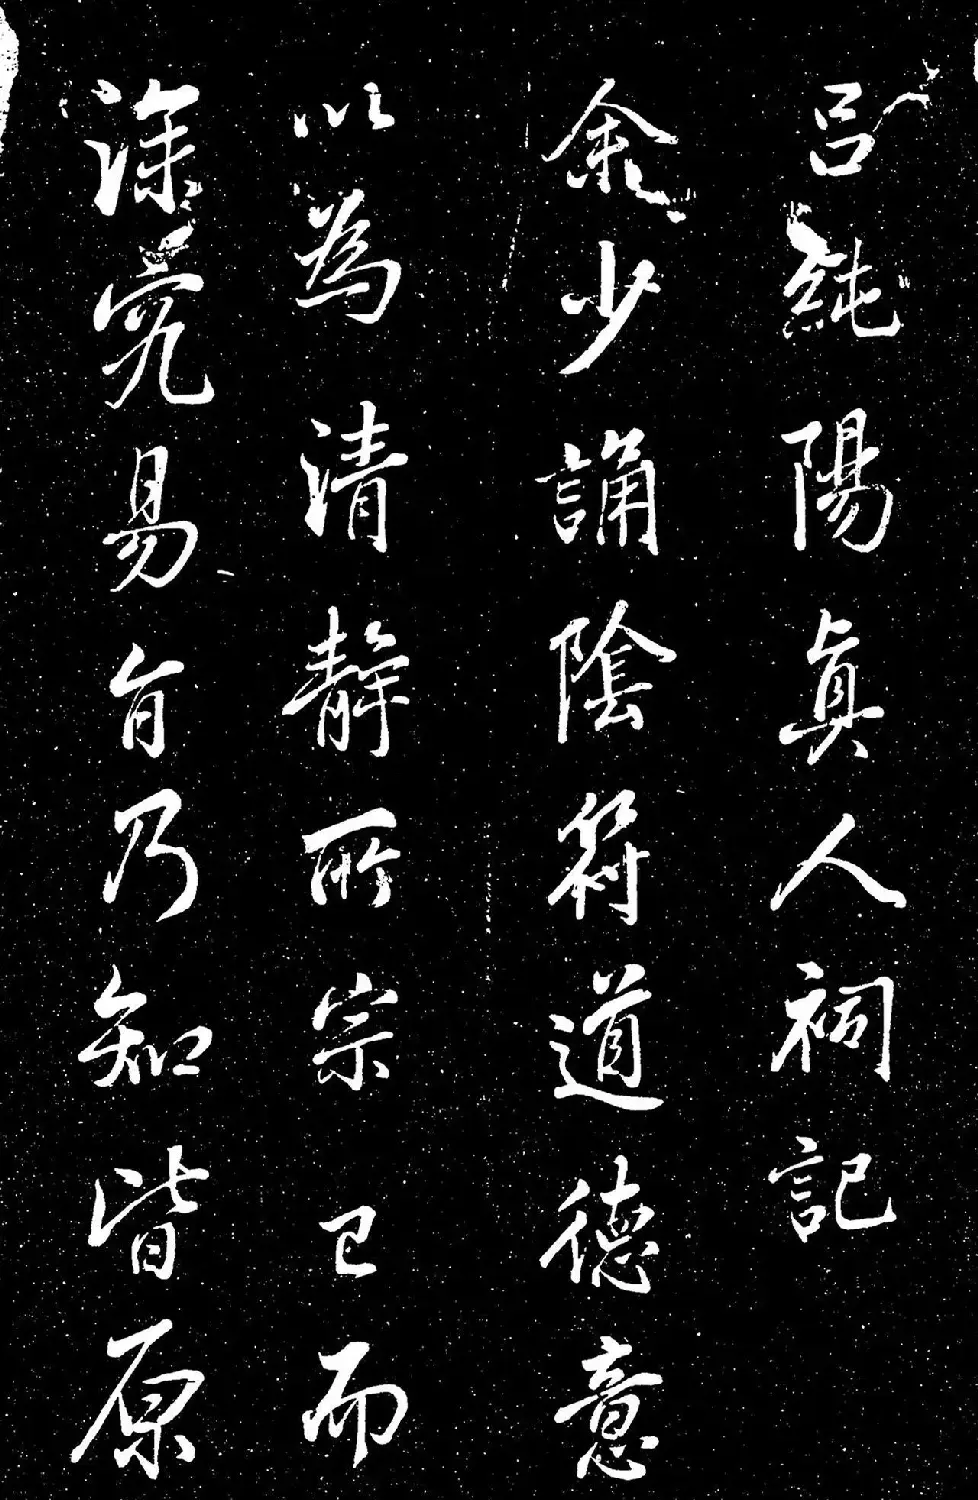 呂純陽真人祠記
余少誦陰符道德意
以為清靜所宗已而
深究易旨乃知皆原